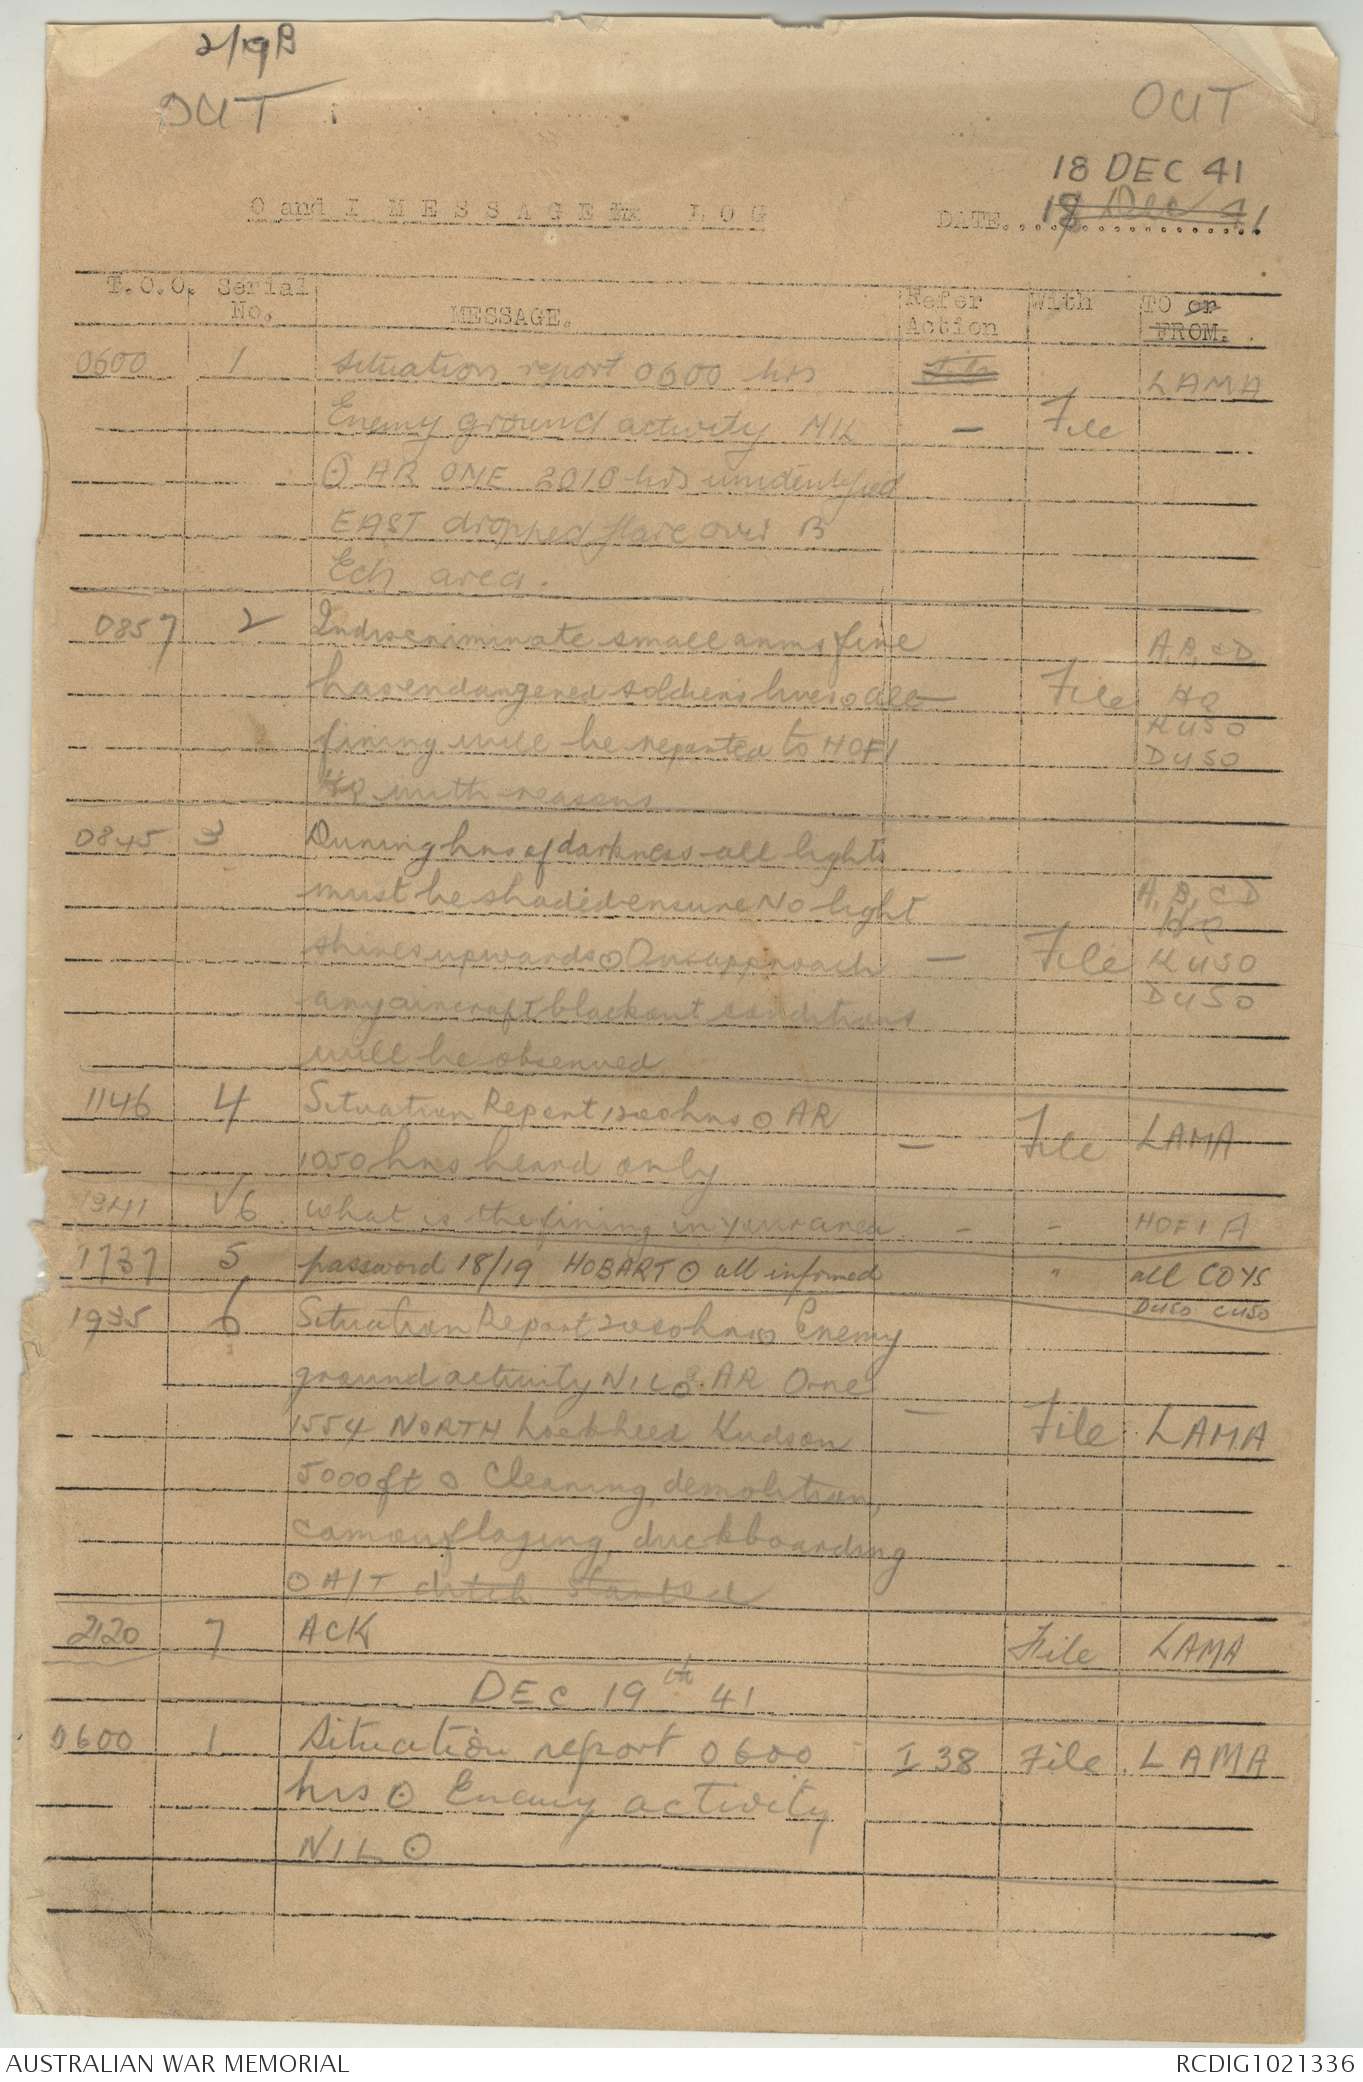 2/19B
OUT OUT
18 DEC 41
O and I MESSAGE LOG DATE....18 Dec 41
T.O.O. Serial No. MESSAGE. Refer Action With TO or FROM.
0600 1 Situation report 0600 hrs File LAMA
Enemy ground activity NIL — File
⊙ AR ONE 2010 hrs unidentified
EAST dropped flare over B
Ech area.
0857 2 Indiscriminate small arms fire A, B, C D
has endangered soldiers lives ⊙ all — File HQ
KUSO
firing will be reported to HOFI DUSO
HQ with reasons
0845 3 During hrs of darkness all lights
must be shaded ensure No light A, B, C D
HQ
shines upwards ⊙ On approach — File KUSO
any aircraft blackout conditions DUSO
will be observed
1146 4 Situation Report 1200 hrs ⊙ AR — File LAMA
1050 hrs heard only
1341 V6 what is the firing in your area - - HOFI A
1737 5 password 18/19 HOBART ⊙ all informed " all COYS
DUSO CUSO
1935 6 Situation Report 2000 hrs ⊙ Enemy
ground activity NIL ⊙ AR One
1554 NORTH Lockheed Hudson — File LAMA
5000 ft ⊙ Clearing, demolition,
camouflaging, duckboarding
⊙ A/T ditch started
2120 7 ACK File LAMA
DEC 19th 41
0600 1 Situation report 0600 I 38 File LAMA
hrs ⊙ Enemy activity
NIL ⊙
AUSTRALIAN WAR MEMORIAL RCDIG1021336